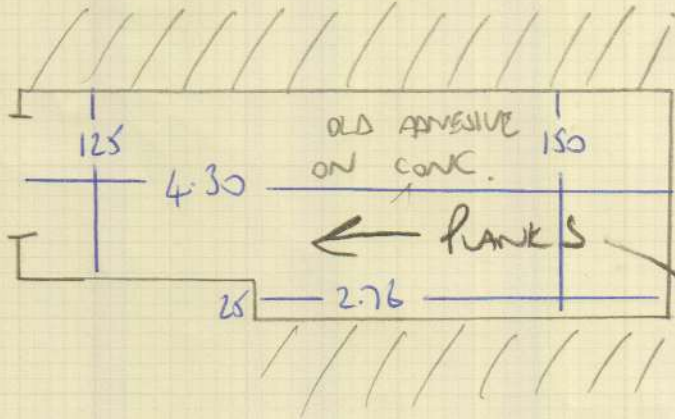 OLD ADHESIVE
ON CONC.
125
150
4.30
← PLANKS
25
2.76